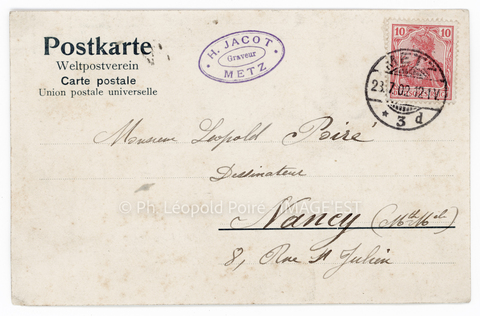 Postkarte
Weltpostverein
Carte postale
Union postale universelle
H. JACOT
Graveur
METZ
10 10
METZ
3 d
Monsieur Léopold Poiré
Dessinateur
© Ph. Léopold Poiré - IMAGE'EST
Nancy (Mthe Mlle)
8, Rue St Julien